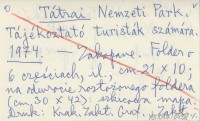 Tátrai Nemzeti Park.
Tájékoztató turisták számára.
1974. — Zakopane. Folder o
6 częściach, il., cm 21 x 10;
na odwrocie rozłożonego foldera
(cm 30 x 42) szkicowa mapa
Druk: Krak. Zakł. Graf.